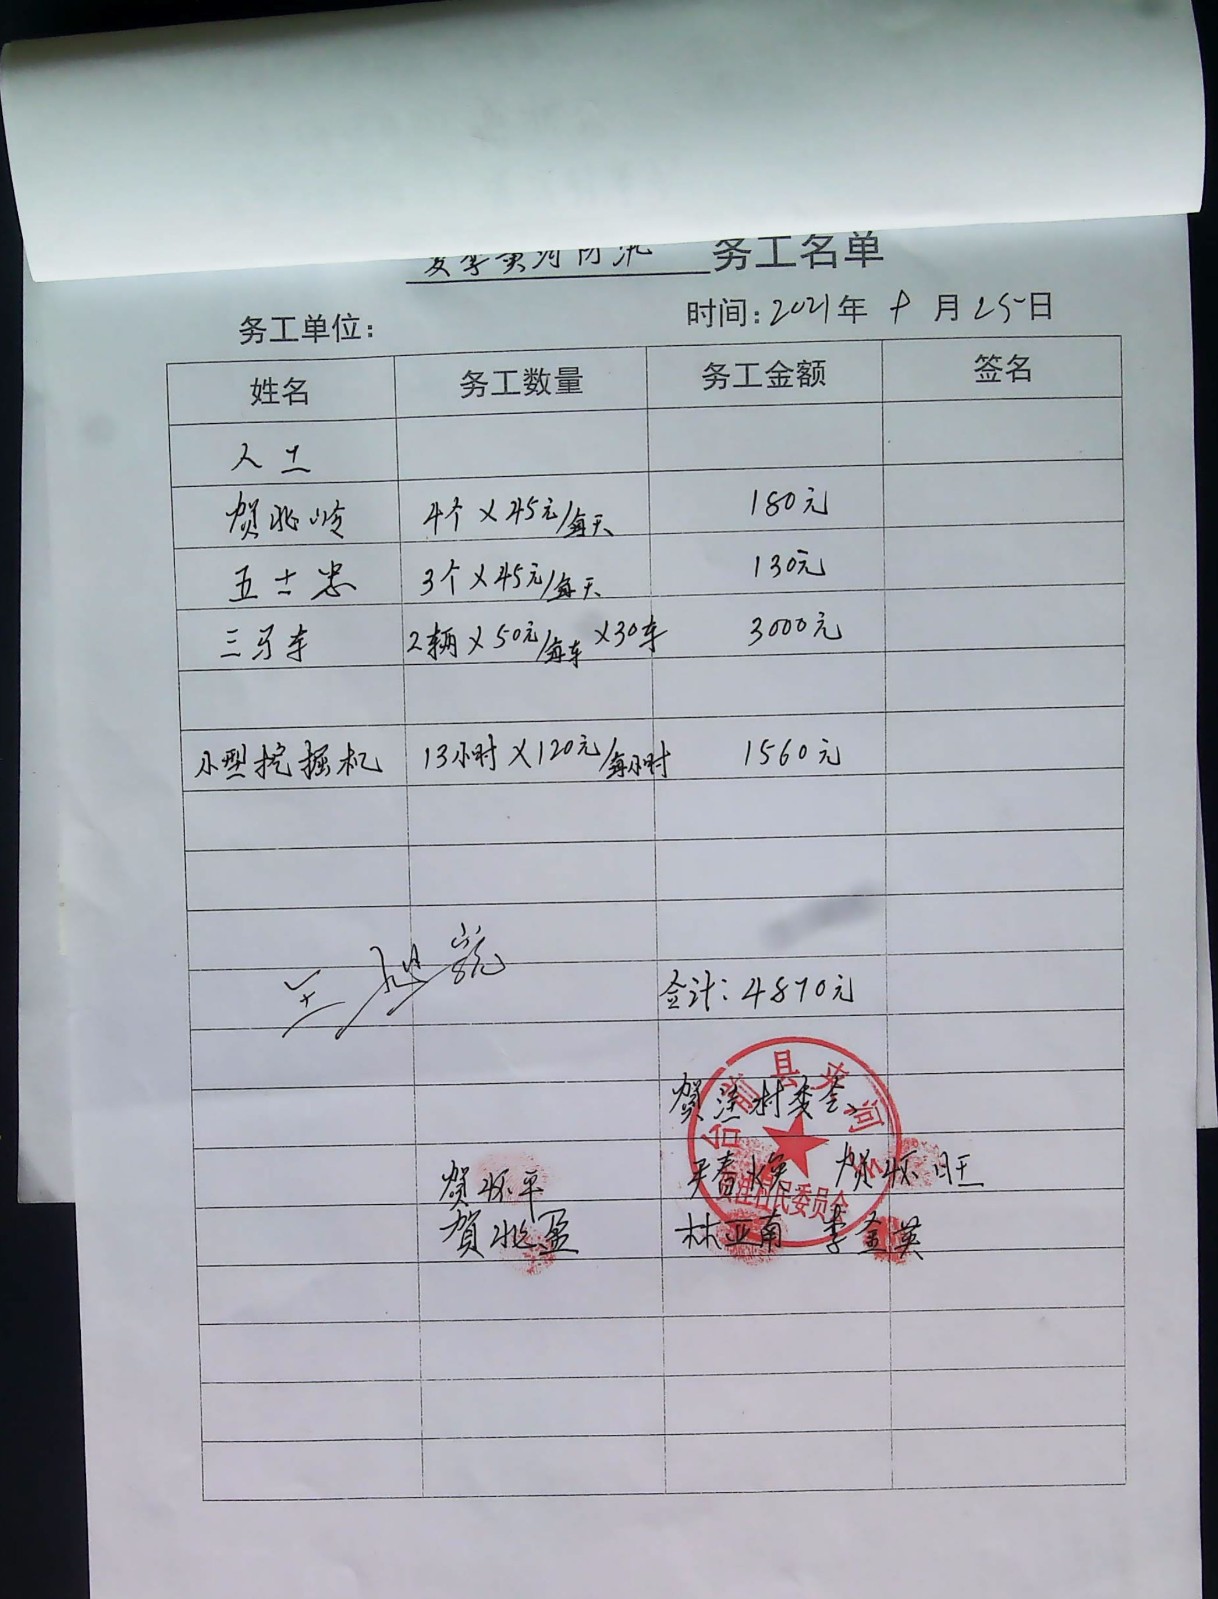 夏季黄河防汛 务工名单
务工单位： 时间：2021年 8 月 25日
姓名 务工数量 务工金额 签名
人工
贺兆岭 4个×45元/每天 180元
五士忠 3个×45元/每天 130元
三马车 2辆×50元/每车×30车 3000元
小型挖掘机 13小时×120元/每小时 1560元
合计：4870元
贺洼村委会
台前县夹河
村民委员会
贺怀平 贺怀旺
賀兆盈 林亚南 李金英